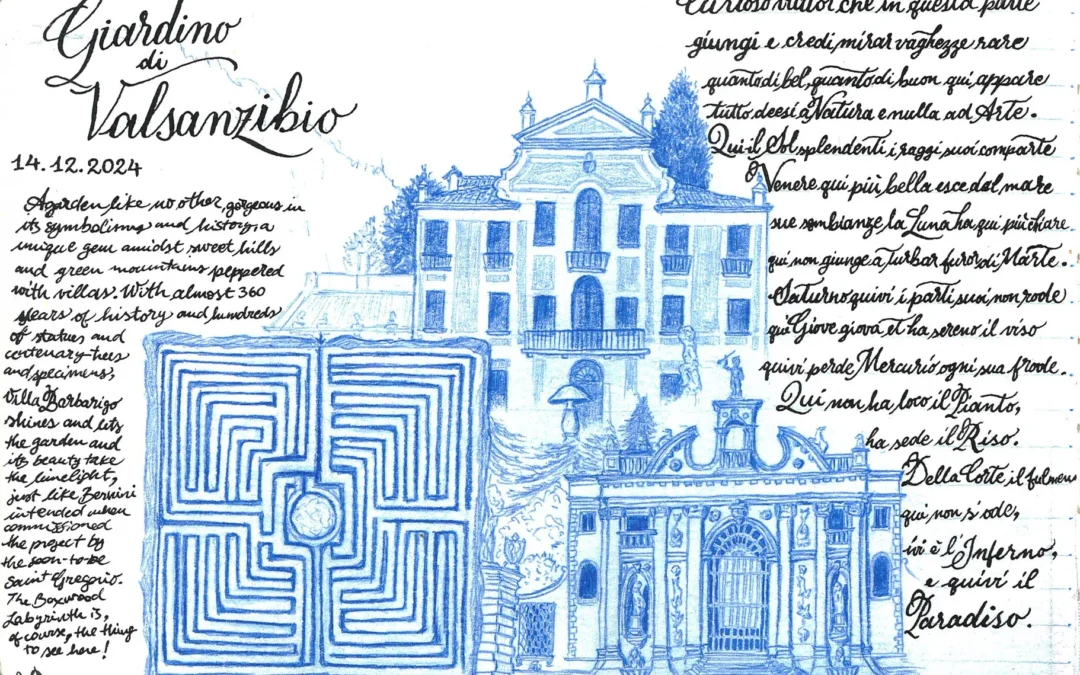 Giardino
di
Valsanzibio
14.12.2024
A garden like no other, gorgeous in
its symbolisms and history, a
unique gem amidst sweet hills
and green mountains peppered
with villas. With almost 360
years of history and hundreds
of statues and
centenary trees
and specimens,
Villa Barbarigo
shines and lets
the garden and
its beauty take
the limelight,
just like Bernini
intended when
commissioned
the project by
the soon-to-be
Saint Gregorio.
The Boxwood
Labyrinth is,
of course, the thing
to see here!
Curioso viator, che in questa parte
giungi e credi mirar vaghezze rare
quanto di bel, quanto di buon qui appare
tutto deesi a Natura e nulla ad Arte.
Qui il Sol splendenti i raggi suoi comparte
Venere qui più bella esce dal mare
sue sembianze la Luna ha qui più chiare
qui non giunge a turbar furor di Marte.
Saturno quivi i parti suoi non rode
qui Giove giova et ha sereno il viso
quivi perde Mercurio ogni sua frode.
Qui non ha loco il Pianto,
ha sede il Riso.
Della Corte il fulmin
qui non s'ode,
ivi è l'Inferno,
e quivi il
Paradiso.